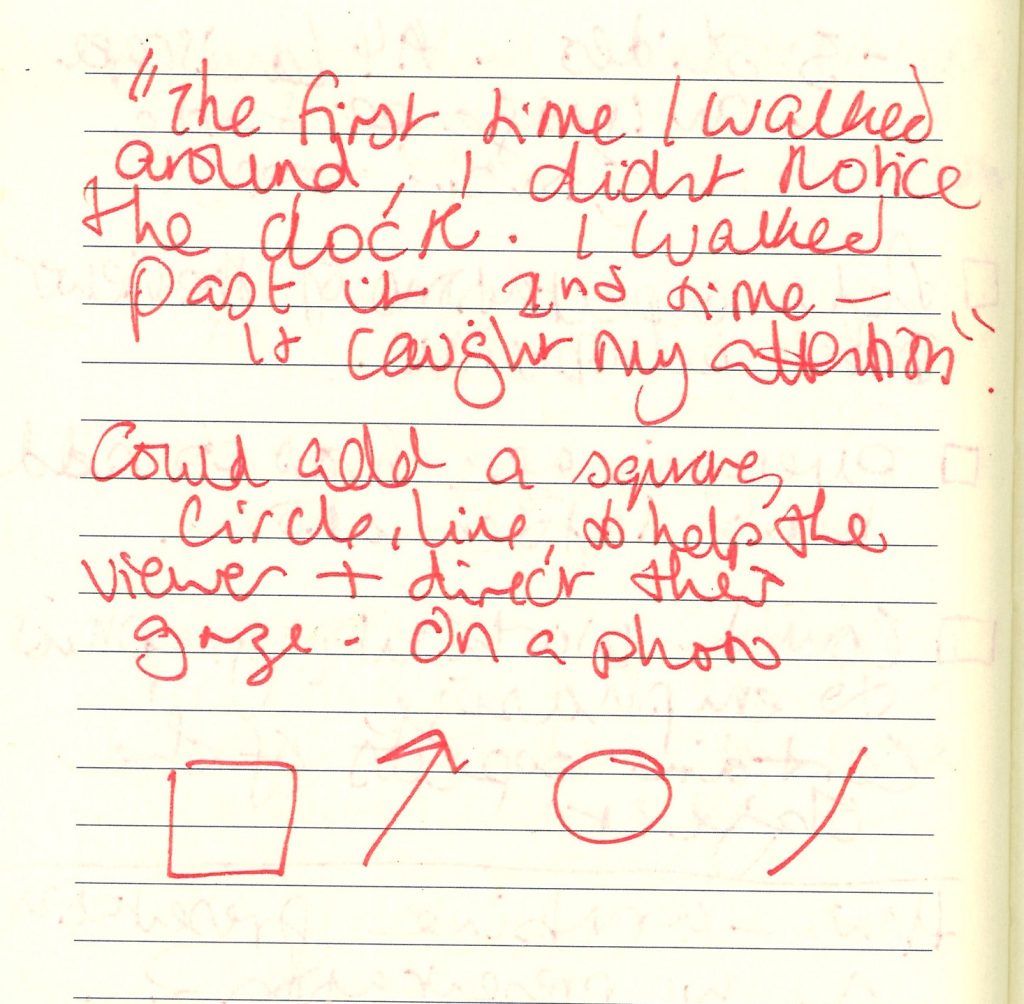 "The first time I walked
around, I didnt notice
the clock. I walked
past it 2nd time –
It caught my attention".
Could add a square,
circle, line, to help the
viewer + direct their
gaze - On a photo